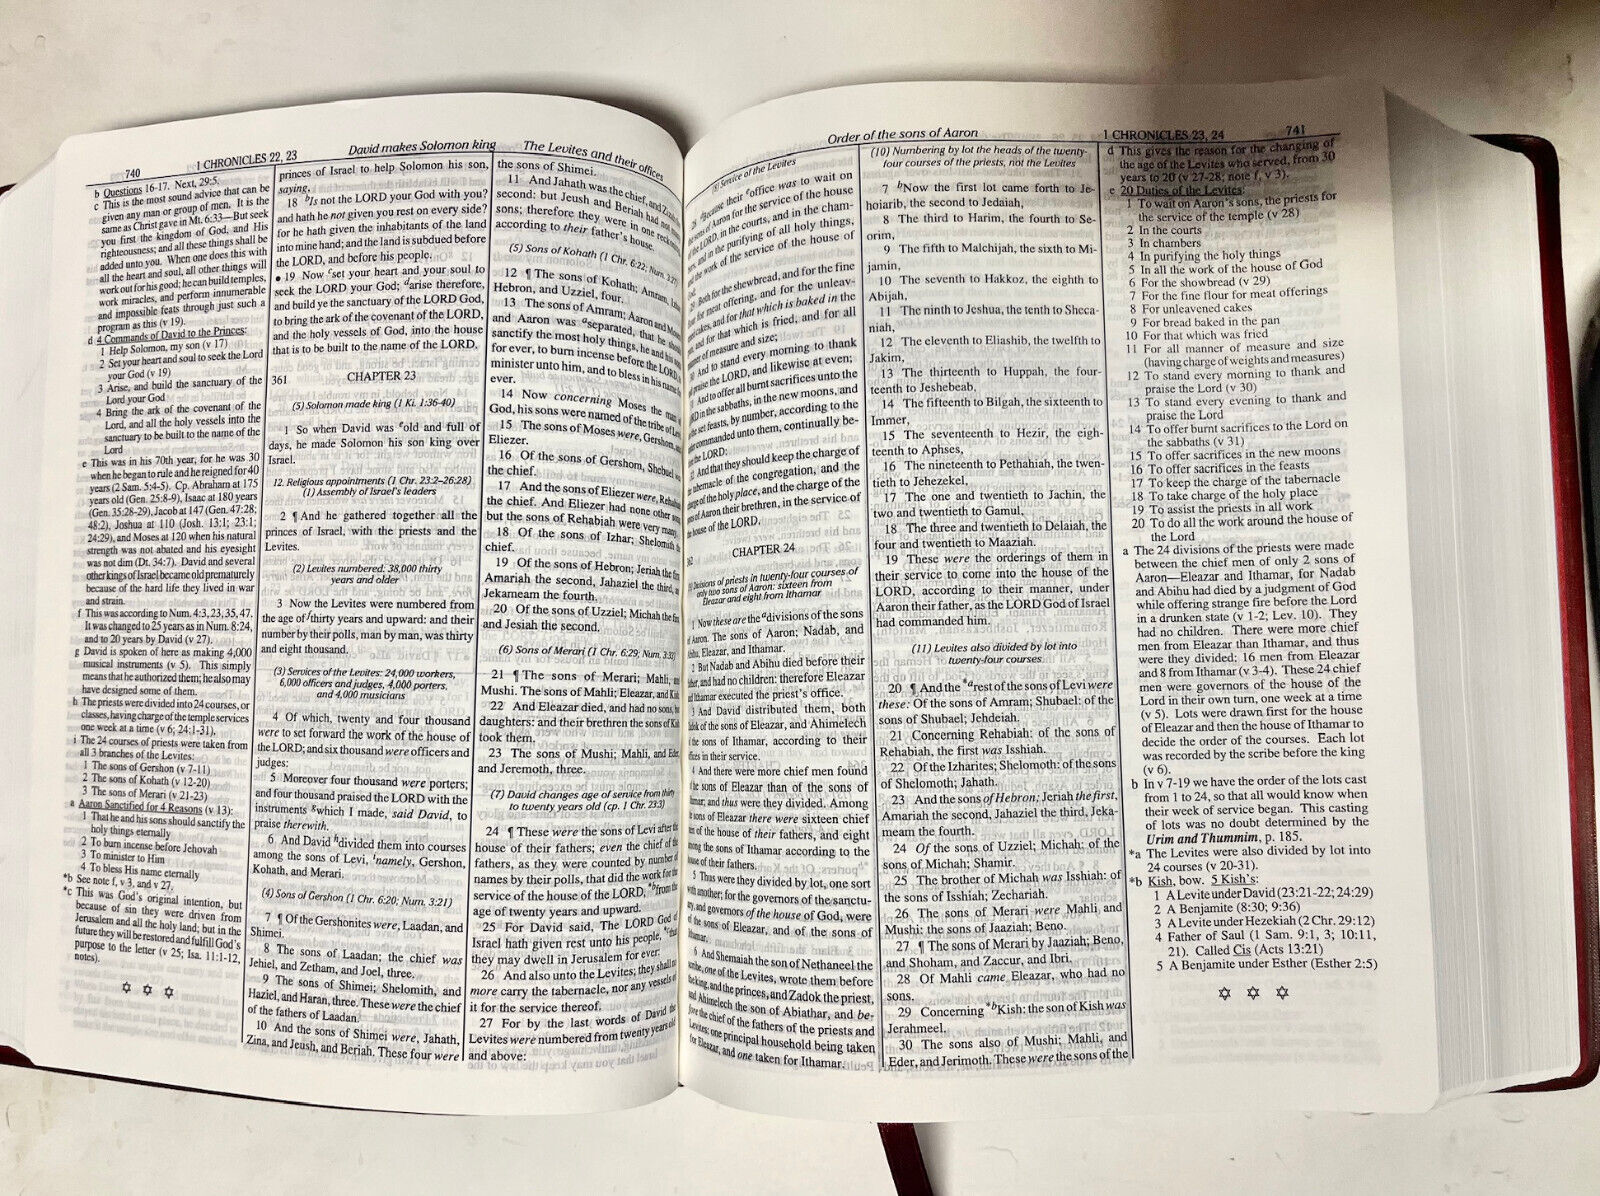 740
1 CHRONICLES 22, 23
David makes Solomon king
The Levites and their offices
b Questions 16-17. Next, 29:5.
c This is the most sound advice that can be
given any man or group of men. It is the
same as Christ gave in Mt. 6:33—But seek
you first the kingdom of God, and His
righteousness; and all these things shall be
added unto you. When one does this with
all the heart and soul, all other things will
work out for good; he can build temples,
work miracles, and perform innumerable
and impossible feats through just such a
program as this (v 19).
d 4 Commands of David to the Princes:
1 Help Solomon, my son (v 17)
2 Set your heart and soul to seek the Lord
your God (v 19)
3 Arise, and build the sanctuary of the
Lord your God
4 Bring the ark of the covenant of the
Lord, and all the holy vessels into the
sanctuary to be built to the name of the
Lord
e This was in his 70th year; for he was 30
when he began to rule and he reigned for 40
years (2 Sam. 5:4-5). Cp. Abraham at 175
years old (Gen. 25:8-9), Isaac at 180 years
(Gen. 35:28-29), Jacob at 147 (Gen. 47:28;
48:2), Joshua at 110 (Josh. 13:1; 23:1;
24:29), and Moses at 120 when his natural
strength was not abated and his eyesight
was not dim (Dt. 34:7). David and several
other kings of Israel became old prematurely
because of the hard life they lived in war
and strain.
f This was according to Num. 4:3, 23, 35, 47.
It was changed to 25 years as in Num. 8:24,
and to 20 years by David (v 27).
g David is spoken of here as making 4,000
musical instruments (v 5). This simply
means that he authorized them; he also may
have designed some of them.
h The priests were divided into 24 courses, or
classes, having charge of the temple services
one week at a time (v 6; 24:1-31).
i The 24 courses of priests were taken from
all 3 branches of the Levites:
1 The sons of Gershon (v 7-11)
2 The sons of Kohath (v 12-20)
3 The sons of Merari (v 21-23)
a Aaron Sanctified for 4 Reasons (v 13):
1 That he and his sons should sanctify the
holy things eternally
2 To burn incense before Jehovah
3 To minister to Him
4 To bless His name eternally
*b See note f, v 3, and v 27.
*c This was God's original intention, but
because of sin they were driven from
Jerusalem and all the holy land; but in the
future they will be restored and fulfill God's
purpose to the letter (v 25; Isa. 11:1-12,
notes).
princes of Israel to help Solomon his son,
saying,
18 bIs not the LORD your God with you?
and hath he not given you rest on every side?
for he hath given the inhabitants of the land
into mine hand; and the land is subdued before
the LORD, and before his people.
• 19 Now cset your heart and your soul to
seek the LORD your God; darise therefore,
and build ye the sanctuary of the LORD God,
to bring the ark of the covenant of the LORD,
and the holy vessels of God, into the house
that is to be built to the name of the LORD.
361 CHAPTER 23
(5) Solomon made king (1 Ki. 1:36-40)
1 So when David was eold and full of
days, he made Solomon his son king over
Israel.
12. Religious appointments (1 Chr. 23:2–26:28)
(1) Assembly of Israel's leaders
2 ¶ And he gathered together all the
princes of Israel, with the priests and the
Levites.
(2) Levites numbered: 38,000 thirty
years and older
3 Now the Levites were numbered from
the age of fthirty years and upward: and their
number by their polls, man by man, was thirty
and eight thousand.
(3) Services of the Levites: 24,000 workers,
6,000 officers and judges, 4,000 porters,
and 4,000 musicians
4 Of which, twenty and four thousand
were to set forward the work of the house of
the LORD; and six thousand were officers and
judges:
5 Moreover four thousand were porters;
and four thousand praised the LORD with the
instruments gwhich I made, said David, to
praise therewith.
6 And David hdivided them into courses
among the sons of Levi, inamely, Gershon,
Kohath, and Merari.
(4) Sons of Gershon (1 Chr. 6:20; Num. 3:21)
7 ¶ Of the Gershonites were, Laadan, and
Shimei.
8 The sons of Laadan; the chief was
Jehiel, and Zetham, and Joel, three.
9 The sons of Shimei; Shelomith, and
Haziel, and Haran, three. These were the chief
of the fathers of Laadan.
10 And the sons of Shimei were, Jahath,
Zina, and Jeush, and Beriah. These four were
the sons of Shimei.
11 And Jahath was the chief, and Zizah the
second: but Jeush and Beriah had not many
sons; therefore they were in one reckoning,
according to their father's house.
(5) Sons of Kohath (1 Chr. 6:22; Num. 3:27)
12 ¶ The sons of Kohath; Amram, Izhar,
Hebron, and Uzziel, four.
13 The sons of Amram; Aaron and Moses:
and Aaron was aseparated, that he should
sanctify the most holy things, he and his sons
for ever, to burn incense before the LORD, to
minister unto him, and to bless in his name for
ever.
14 Now concerning Moses the man of
God, his sons were named of the tribe of Levi.
15 The sons of Moses were, Gershom, and
Eliezer.
16 Of the sons of Gershom, Shebuel was
the chief.
17 And the sons of Eliezer were, Rehabiah
the chief. And Eliezer had none other sons;
but the sons of Rehabiah were very many.
18 Of the sons of Izhar; Shelomith the
chief.
19 Of the sons of Hebron; Jeriah the first,
Amariah the second, Jahaziel the third, and
Jekameam the fourth.
20 Of the sons of Uzziel; Michah the first,
and Jesiah the second.
(6) Sons of Merari (1 Chr. 6:29; Num. 3:33)
21 ¶ The sons of Merari; Mahli, and
Mushi. The sons of Mahli; Eleazar, and Kish.
22 And Eleazar died, and had no sons, but
daughters: and their brethren the sons of Kish
took them.
23 The sons of Mushi; Mahli, and Eder,
and Jeremoth, three.
(7) David changes age of service from thirty
to twenty years old (cp. 1 Chr. 23:3)
24 ¶ These were the sons of Levi after the
house of their fathers; even the chief of the
fathers, as they were counted by number of
names by their polls, that did the work for the
service of the house of the LORD, *bfrom the
age of twenty years and upward.
25 For David said, The LORD God of
Israel hath given rest unto his people, *cthat
they may dwell in Jerusalem for ever:
26 And also unto the Levites; they shall no
more carry the tabernacle, nor any vessels of
it for the service thereof.
27 For by the last words of David the
Levites were numbered from twenty years old
and above:
Order of the sons of Aaron
1 CHRONICLES 23, 24
741
(8) Service of the Levites
28 dBecause their eoffice was to wait on
the sons of Aaron for the service of the house
of the LORD, in the courts, and in the cham-
bers, and in the purifying of all holy things,
and the work of the service of the house of
God;
29 Both for the shewbread, and for the fine
flour for meat offering, and for the unleav-
ened cakes, and for that which is baked in the
pan, and for that which is fried, and for all
manner of measure and size;
30 And to stand every morning to thank
and praise the LORD, and likewise at even;
31 And to offer all burnt sacrifices unto the
LORD in the sabbaths, in the new moons, and
on the set feasts, by number, according to the
order commanded unto them, continually be-
fore the LORD:
32 And that they should keep the charge of
the tabernacle of the congregation, and the
charge of the holy place, and the charge of the
sons of Aaron their brethren, in the service of
the house of the LORD.
362 CHAPTER 24
Divisions of priests in twenty-four courses of
only two sons of Aaron: sixteen from
Eleazar and eight from Ithamar
1 Now these are the adivisions of the sons
of Aaron. The sons of Aaron; Nadab, and
Abihu, Eleazar, and Ithamar.
2 But Nadab and Abihu died before their
father, and had no children: therefore Eleazar
and Ithamar executed the priest's office.
3 And David distributed them, both
Zadok of the sons of Eleazar, and Ahimelech
of the sons of Ithamar, according to their
offices in their service.
4 And there were more chief men found
of the sons of Eleazar than of the sons of
Ithamar; and thus were they divided. Among
the sons of Eleazar there were sixteen chief
men of the house of their fathers, and eight
among the sons of Ithamar according to the
house of their fathers.
5 Thus were they divided by lot, one sort
with another; for the governors of the sanctu-
ary, and governors of the house of God, were
of the sons of Eleazar, and of the sons of
Ithamar.
6 And Shemaiah the son of Nethaneel the
scribe, one of the Levites, wrote them before
the king, and the princes, and Zadok the priest,
and Ahimelech the son of Abiathar, and be-
fore the chief of the fathers of the priests and
Levites: one principal household being taken
for Eleazar, and one taken for Ithamar.
(10) Numbering by lot the heads of the twenty-
four courses of the priests, not the Levites
7 bNow the first lot came forth to Je-
hoiarib, the second to Jedaiah,
8 The third to Harim, the fourth to Se-
orim,
9 The fifth to Malchijah, the sixth to Mi-
jamin,
10 The seventh to Hakkoz, the eighth to
Abijah,
11 The ninth to Jeshua, the tenth to Sheca-
niah,
12 The eleventh to Eliashib, the twelfth to
Jakim,
13 The thirteenth to Huppah, the four-
teenth to Jeshebeab,
14 The fifteenth to Bilgah, the sixteenth to
Immer,
15 The seventeenth to Hezir, the eigh-
teenth to Aphses,
16 The nineteenth to Pethahiah, the twen-
tieth to Jehezekel,
17 The one and twentieth to Jachin, the
two and twentieth to Gamul,
18 The three and twentieth to Delaiah, the
four and twentieth to Maaziah.
19 These were the orderings of them in
their service to come into the house of the
LORD, according to their manner, under
Aaron their father, as the LORD God of Israel
had commanded him.
(11) Levites also divided by lot into
twenty-four courses
20 ¶ And the *arest of the sons of Levi were
these: Of the sons of Amram; Shubael: of the
sons of Shubael; Jehdeiah.
21 Concerning Rehabiah: of the sons of
Rehabiah, the first was Isshiah.
22 Of the Izharites; Shelomoth: of the sons
of Shelomoth; Jahath.
23 And the sons of Hebron; Jeriah the first,
Amariah the second, Jahaziel the third, Jeka-
meam the fourth.
24 Of the sons of Uzziel; Michah: of the
sons of Michah; Shamir.
25 The brother of Michah was Isshiah: of
the sons of Isshiah; Zechariah.
26 The sons of Merari were Mahli and
Mushi: the sons of Jaaziah; Beno.
27 ¶ The sons of Merari by Jaaziah; Beno,
and Shoham, and Zaccur, and Ibri.
28 Of Mahli came Eleazar, who had no
sons.
29 Concerning *bKish: the son of Kish was
Jerahmeel.
30 The sons also of Mushi; Mahli, and
Eder, and Jerimoth. These were the sons of the
d This gives the reason for the changing of
the age of the Levites who served, from 30
years to 20 (v 27-28; note f, v 3).
e 20 Duties of the Levites:
1 To wait on Aaron's sons, the priests for
the service of the temple (v 28)
2 In the courts
3 In chambers
4 In purifying the holy things
5 In all the work of the house of God
6 For the showbread (v 29)
7 For the fine flour for meat offerings
8 For unleavened cakes
9 For bread baked in the pan
10 For that which was fried
11 For all manner of measure and size
(having charge of weights and measures)
12 To stand every morning to thank and
praise the Lord (v 30)
13 To stand every evening to thank and
praise the Lord
14 To offer burnt sacrifices to the Lord on
the sabbaths (v 31)
15 To offer sacrifices in the new moons
16 To offer sacrifices in the feasts
17 To keep the charge of the tabernacle
18 To take charge of the holy place
19 To assist the priests in all work
20 To do all the work around the house of
the Lord
a The 24 divisions of the priests were made
between the chief men of only 2 sons of
Aaron—Eleazar and Ithamar, for Nadab
and Abihu had died by a judgment of God
while offering strange fire before the Lord
in a drunken state (v 1-2; Lev. 10). They
had no children. There were more chief
men from Eleazar than Ithamar, and thus
were they divided: 16 men from Eleazar
and 8 from Ithamar (v 3-4). These 24 chief
men were governors of the house of the
Lord in their own turn, one week at a time
(v 5). Lots were drawn first for the house
of Eleazar and then the house of Ithamar to
decide the order of the courses. Each lot
was recorded by the scribe before the king
(v 6).
b In v 7-19 we have the order of the lots cast
from 1 to 24, so that all would know when
their week of service began. This casting
of lots was no doubt determined by the
Urim and Thummim, p. 185.
*a The Levites were also divided by lot into
24 courses (v 20-31).
*b Kish, bow. 5 Kish's:
1 A Levite under David (23:21-22; 24:29)
2 A Benjamite (8:30; 9:36)
3 A Levite under Hezekiah (2 Chr. 29:12)
4 Father of Saul (1 Sam. 9:1, 3; 10:11,
21). Called Cis (Acts 13:21)
5 A Benjamite under Esther (Esther 2:5)